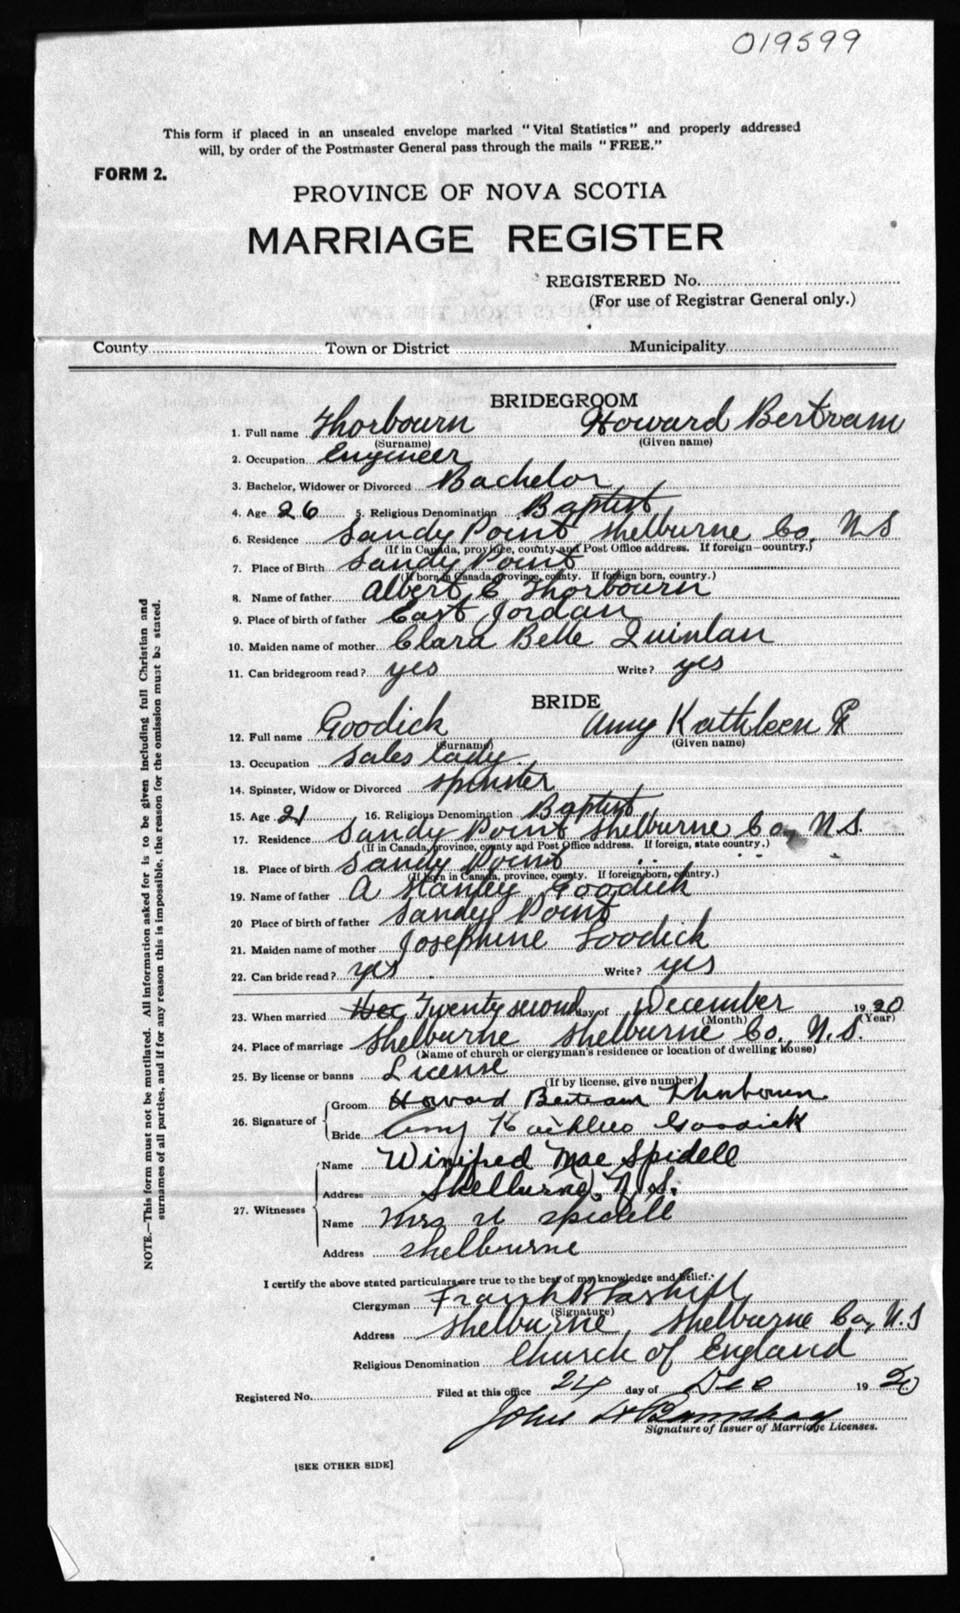 019599
This form if placed in an unsealed envelope marked "Vital Statistics" and properly addressed
will, by order of the Postmaster General pass through the mails "FREE."
FORM 2.
PROVINCE OF NOVA SCOTIA
MARRIAGE REGISTER
REGISTERED No.
(For use of Registrar General only.)
County Town or District Municipality
BRIDEGROOM
1. Full name Thorbourn Howard Bertram
(Surname) (Given name)
2. Occupation Engineer
3. Bachelor, Widower or Divorced Bachelor
4. Age 26 5. Religious Denomination Baptist
6. Residence Sandy Point Shelburne Co, N S
(If in Canada, province, county and Post Office address. If foreign—country.)
7. Place of Birth Sandy Point
(If born in Canada, province, county. If foreign born, country.)
8. Name of father Albert E Thorbourn
9. Place of birth of father East Jordan
10. Maiden name of mother Clara Belle Quinlan
11. Can bridegroom read? yes Write? yes
BRIDE
12. Full name Goodick Amy Kathleen
(Surname) (Given name)
13. Occupation Sales lady
14. Spinster, Widow or Divorced Spinster
15. Age 21 16. Religious Denomination Baptist
17. Residence Sandy Point Shelburne Co, N.S.
(If in Canada, province, county and Post Office address. If foreign, state country.)
18. Place of birth Sandy Point
(If born in Canada, province, county. If foreign born, country.)
19. Name of father A Stanley Goodick
20 Place of birth of father Sandy Point
21. Maiden name of mother Josephine Goodick
22. Can bride read? yes Write? yes
23. When married Dec Twenty second day of December 1920
(Month) (Year)
24. Place of marriage Shelburne Shelburne Co., N.S.
(Name of church or clergyman's residence or location of dwelling house)
25. By license or banns License
(If by license, give number)
26. Signature of
Groom Howard Bertram Thorbourn
Bride Amy Kathleen Goodick
27. Witnesses
Name Winifred Mae Spidell
Address Shelburne, N.S.
Name Mrs Spidell
Address Shelburne
I certify the above stated particulars are true to the best of my knowledge and belief.
Clergyman Frank R
(Signature)
Address Shelburne, Shelburne Co, N.S
Religious Denomination Church of England
Registered No. Filed at this office 24 day of Dec 1920
John
Signature of Issuer of Marriage Licenses.
[SEE OTHER SIDE]
NOTE.—This form must not be mutilated. All information asked for is to be given including full Christian and
surnames of all parties, and if for any reason this is impossible, the reason for the omission must be stated.